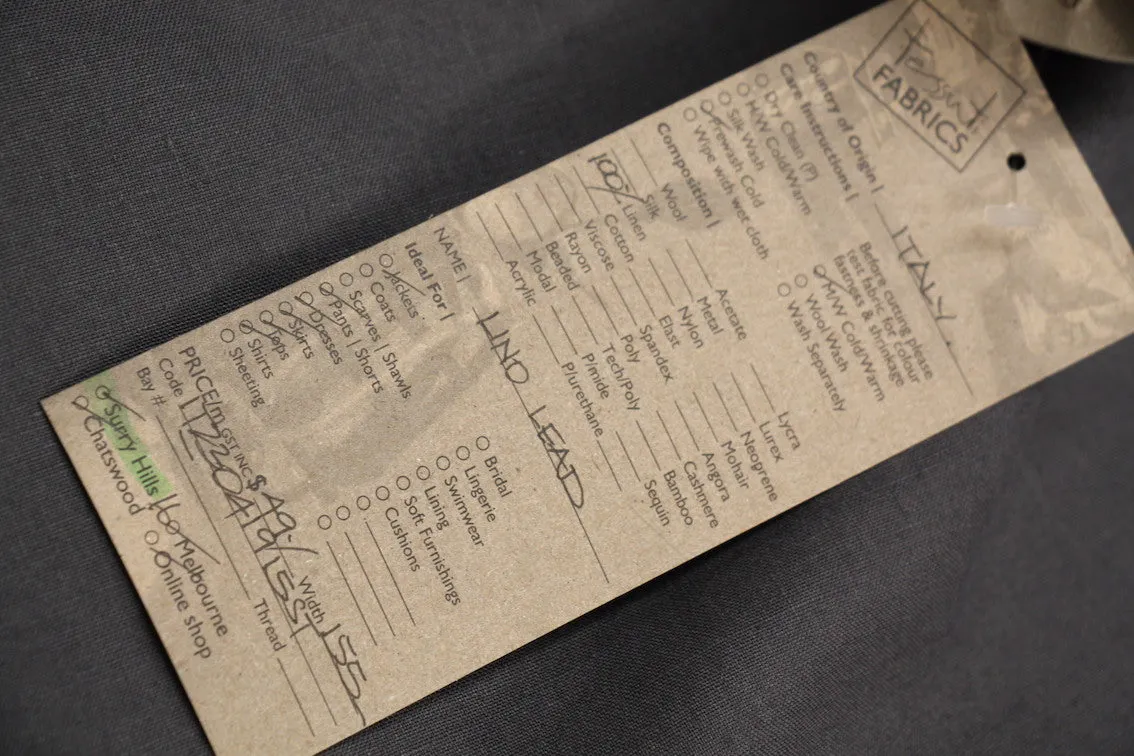 Tessuti
FABRICS
Country of Origin | ITALY
Care Instructions |
Dry Clean (P)
H/W Cold/Warm
Silk Wash
Prewash Cold
Wipe with wet cloth
Before cutting please
test fabric for colour
fastness & shrinkage
M/W Cold/Warm
Wool Wash
Wash Separately
Composition |
Silk
Wool
100% Linen
Cotton
Viscose
Rayon
Beaded
Modal
Acrylic
Acetate
Metal
Nylon
Elast
Spandex
Poly
Tech/Poly
P/mide
P/urethane
Lycra
Lurex
Neoprene
Mohair
Angora
Cashmere
Bamboo
Sequin
NAME | LINO LEAD
Ideal For |
Jackets
Coats
Scarves | Shawls
Pants | Shorts
Dresses
Skirts
Tops
Shirts
Sheeting
Bridal
Lingerie
Swimwear
Lining
Soft Furnishings
Cushions
PRICE/m GST INC $ 49.- Width 155
Code
Bay # Thread
Surry Hills Melbourne
Chatswood Online shop